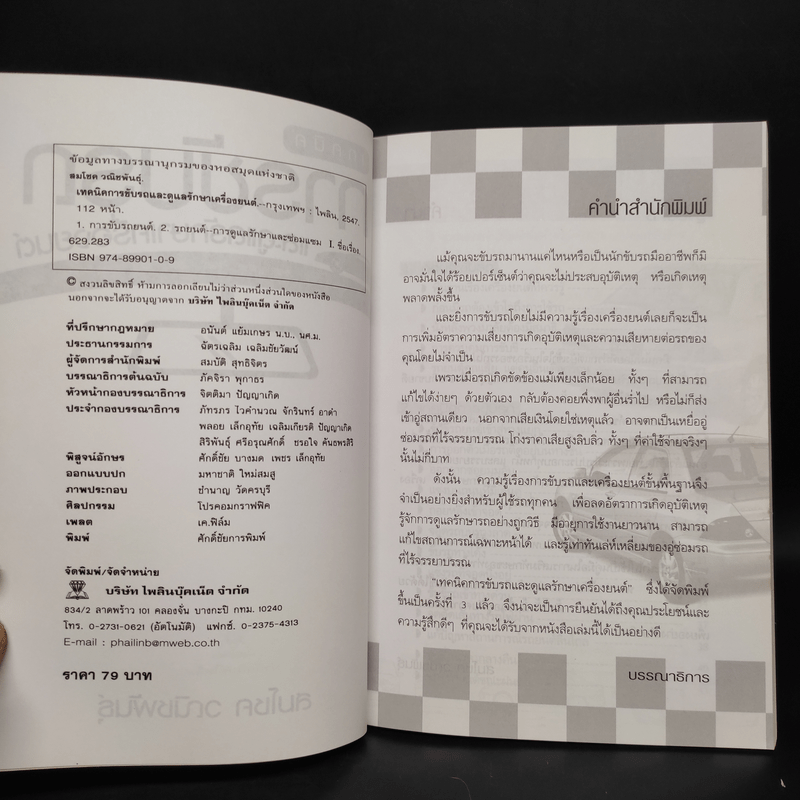 ข้อมูลทางบรรณานุกรมของหอสมุดแห่งชาติ
สมโชค วณิชพันธุ์.
เทคนิคการขับรถและดูแลรักษาเครื่องยนต์.--กรุงเทพฯ : ไพลิน, 2547.
112 หน้า.
1. การขับรถยนต์. 2. รถยนต์--การดูแลรักษาและซ่อมแซม I. ชื่อเรื่อง.
629.283
ISBN 974-89901-0-9
© สงวนลิขสิทธิ์ ห้ามการลอกเลียนไม่ว่าส่วนหนึ่งส่วนใดของหนังสือ
นอกจากจะได้รับอนุญาตจาก บริษัท ไพลินบุ๊คเน็ต จำกัด
ที่ปรึกษากฎหมาย อนันต์ แย้มเกษร น.บ., นศ.ม.
ประธานกรรมการ ฉัตรเฉลิม เฉลิมชัยวัฒน์
ผู้จัดการสำนักพิมพ์ สมบัติ สุทธิจิตร
บรรณาธิการต้นฉบับ ภัคจิรา พุกาธร
หัวหน้ากองบรรณาธิการ จิตติมา ปัญญาเกิด
ประจำกองบรรณาธิการ ภัทรภร ไวคำนวณ จักรินทร์ อาดำ
พลอย เล็กอุทัย เฉลิมเกียรติ ปัญญาเกิด
สิริพันธุ์ ศรีอรุณศักดิ์ ชรอใจ คันธพรสิริ
พิสูจน์อักษร ศักดิ์ชัย บางมด เพชร เล็กอุทัย
ออกแบบปก มหาชาติ ใหม่สมสู
ภาพประกอบ ชำนาญ วัดครบุรี
ศิลปกรรม โปรคอมกราฟฟิค
เพลต เค.ฟิล์ม
พิมพ์ ศักดิ์ชัยการพิมพ์
จัดพิมพ์/จัดจำหน่าย
บริษัท ไพลินบุ๊คเน็ต จำกัด
834/2 ลาดพร้าว 101 คลองจั่น บางกะปิ กทม. 10240
โทร. 0-2731-0621 (อัตโนมัติ) แฟกซ์. 0-2375-4313
E-mail : phailinb@mweb.co.th
ราคา 79 บาท
คำนำสำนักพิมพ์
แม้คุณจะขับรถมานานแค่ไหนหรือเป็นนักขับรถมืออาชีพก็มิ
อาจมั่นใจได้ร้อยเปอร์เซ็นต์ว่าคุณจะไม่ประสบอุบัติเหตุ หรือเกิดเหตุ
พลาดพลั้งขึ้น
และยิ่งการขับรถโดยไม่มีความรู้เรื่องเครื่องยนต์เลยก็จะเป็น
การเพิ่มอัตราความเสี่ยงการเกิดอุบัติเหตุและความเสียหายต่อรถของ
คุณโดยไม่จำเป็น
เพราะเมื่อรถเกิดขัดข้องแม้เพียงเล็กน้อย ทั้งๆ ที่สามารถ
แก้ไขได้ง่ายๆ ด้วยตัวเอง กลับต้องคอยพึ่งพาผู้อื่นร่ำไป หรือไม่ก็ส่ง
เข้าอู่สถานเดียว นอกจากเสียเงินโดยใช่เหตุแล้ว อาจตกเป็นเหยื่ออู่
ซ่อมรถที่ไร้จรรยาบรรณ โก่งราคาเสียสูงลิบลิ่ว ทั้งๆ ที่ค่าใช้จ่ายจริงๆ
นั้นไม่กี่บาท
ดังนั้น ความรู้เรื่องการขับรถและเครื่องยนต์ขั้นพื้นฐานจึง
จำเป็นอย่างยิ่งสำหรับผู้ใช้รถทุกคน เพื่อลดอัตราการเกิดอุบัติเหตุ
รู้จักการดูแลรักษารถอย่างถูกวิธี มีอายุการใช้งานยาวนาน สามารถ
แก้ไขสถานการณ์เฉพาะหน้าได้ และรู้เท่าทันเล่ห์เหลี่ยมของอู่ซ่อมรถ
ที่ไร้จรรยาบรรณ
"เทคนิคการขับรถและดูแลรักษาเครื่องยนต์" ซึ่งได้จัดพิมพ์
ขึ้นเป็นครั้งที่ 3 แล้ว จึงน่าจะเป็นการยืนยันได้ถึงคุณประโยชน์และ
ความรู้สึกดีๆ ที่คุณจะได้รับจากหนังสือเล่มนี้ได้เป็นอย่างดี
บรรณาธิการ